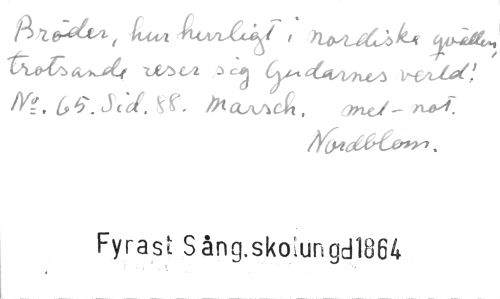 Bröder, hur herrligt i nordiska qvällen,
trotsande reser sig Gudarnes verld!
No. 65. Sid. 88. Marsch. mel-not.
Nordblom.
Fyrast Sång.skolungd1864